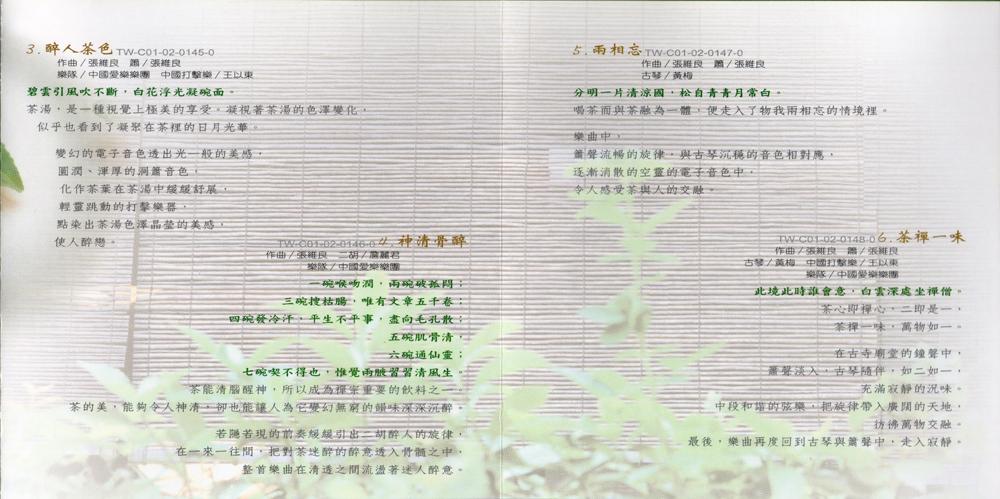 3.醉人茶色 TW-C01-02-0145-0
作曲／張維良　簫／張維良
樂隊／中國愛樂樂團　中國打擊樂／王以東
碧雲引風吹不斷，白花浮光凝碗面。
茶湯，是一種視覺上極美的享受。凝視著茶湯的色澤變化，
似乎也看到了凝聚在茶裡的日月光華。
變幻的電子音色透出光一般的美感，
圓潤、渾厚的洞簫音色，
化作茶葉在茶湯中緩緩舒展，
輕靈跳動的打擊樂器，
點染出茶湯色澤晶瑩的美感，
使人醉戀。
TW-C01-02-0146-0 4.神清骨醉
作曲／張維良　二胡／詹麗君
樂隊／中國愛樂樂團
一碗喉吻潤，兩碗破孤悶；
三碗搜枯腸，唯有文章五千卷；
四碗發冷汗，平生不平事，盡向毛孔散；
五碗肌骨清，
六碗通仙靈；
七碗喫不得也，惟覺兩腋習習清風生。
茶能清腦醒神，所以成為禪宗重要的飲料之一。
茶的美，能夠令人神清，卻也能讓人為它變幻無窮的韻味深深沉醉。
若隱若現的前奏緩緩引出二胡醉人的旋律，
在一來一往間，把對茶迷醉的醉意透入骨髓之中，
整首樂曲在清透之間流盪著迷人醉意。
5.兩相忘 TW-C01-02-0147-0
作曲／張維良　簫／張維良
古琴／黃梅
分明一片清涼國，松自青青月常白。
喝茶而與茶融為一體，便走入了物我兩相忘的情境裡。
樂曲中，
簫聲流暢的旋律，與古琴沉穩的音色相對應，
逐漸消散的空靈的電子音色中，
令人感受茶與人的交融。
TW-C01-02-0148-0 6.茶禪一味
作曲／張維良　簫／張維良
古琴／黃梅　中國打擊樂／王以東
樂隊／中國愛樂樂團
此境此時誰會意，白雲深處坐禪僧。
茶心即禪心，二即是一，
茶禪一味，萬物如一。
在古寺廟堂的鐘聲中，
簫聲淡入，古琴隨伴，如二如一，
充滿寂靜的況味。
中段和諧的弦樂，把旋律帶入廣闊的天地，
彷彿萬物交融。
最後，樂曲再度回到古琴與簫聲中，走入寂靜。